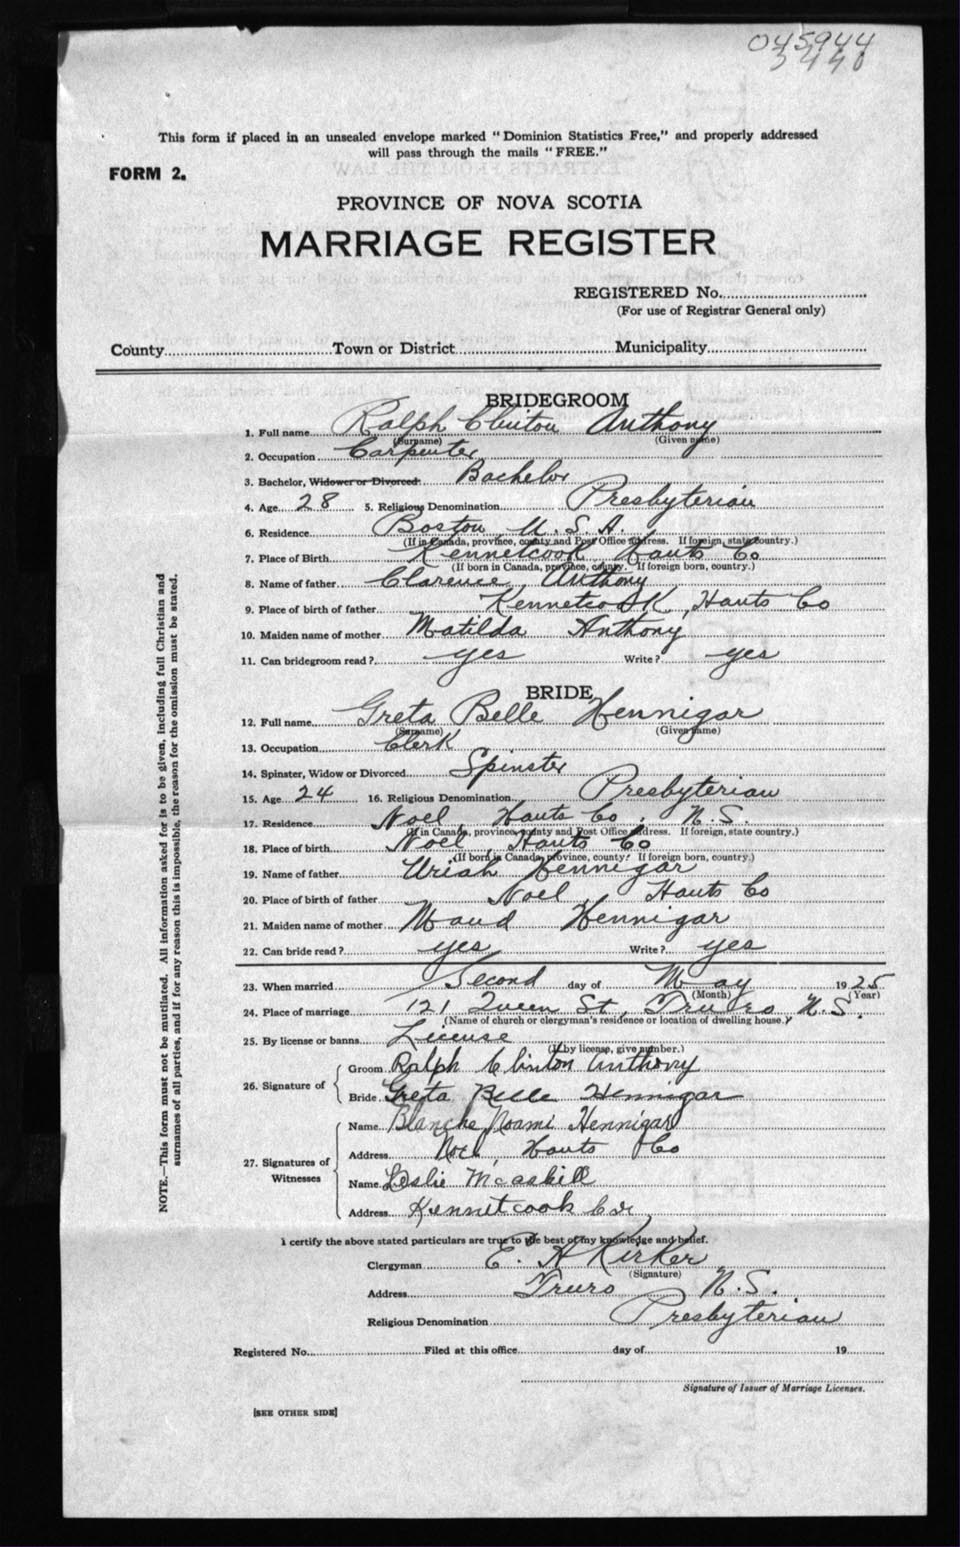 045944
3440
This form if placed in an unsealed envelope marked "Dominion Statistics Free," and properly addressed
will pass through the mails "FREE."
FORM 2.
PROVINCE OF NOVA SCOTIA
MARRIAGE REGISTER
REGISTERED No.
(For use of Registrar General only)
County Town or District Municipality
BRIDEGROOM
1. Full name Ralph Clinton Anthony
(Surname) (Given name)
2. Occupation Carpenter
3. Bachelor, Widower or Divorced Bachelor
4. Age 28 5. Religious Denomination Presbyterian
6. Residence Boston U.S.A.
(If in Canada, province, county and Post Office address. If foreign, state country.)
7. Place of Birth Kennetcook Hants Co
(If born in Canada, province, county. If foreign born, country.)
8. Name of father Clarence Anthony
9. Place of birth of father Kennetcook, Hants Co
10. Maiden name of mother Matilda Anthony
11. Can bridegroom read? yes Write? yes
BRIDE
12. Full name Greta Belle Hennigar
(Surname) (Given name)
13. Occupation Clerk
14. Spinster, Widow or Divorced Spinster
15. Age 24 16. Religious Denomination Presbyterian
17. Residence Noel Hants Co. N.S.
(If in Canada, province, county and Post Office address. If foreign, state country.)
18. Place of birth Noel Hants Co
(If born in Canada, province, county. If foreign born, country.)
19. Name of father Uriah Hennigar
20. Place of birth of father Noel, Hants Co
21. Maiden name of mother Maud Hennigar
22. Can bride read? yes Write? yes
23. When married Second day of May 1925
(Month) (Year)
24. Place of marriage 121 Queen St, Truro N.S.
(Name of church or clergyman's residence or location of dwelling house.)
25. By license or banns License
(If by license, give number.)
26. Signature of
Groom Ralph Clinton Anthony
Bride Greta Belle Hennigar
27. Signatures of Witnesses
Name Blanche Noami Hennigar
Address Noel, Hants Co
Name Leslie McAskill
Address Kennetcook
I certify the above stated particulars are true to the best of my knowledge and belief.
Clergyman E. A Kirker
(Signature)
Address Truro N.S.
Religious Denomination Presbyterian
Registered No. Filed at this office day of 19
Signature of Issuer of Marriage Licenses.
[SEE OTHER SIDE]
NOTE.—This form must not be mutilated. All information asked for is to be given, including full Christian and
surnames of all parties, and if for any reason this is impossible, the reason for the omission must be stated.